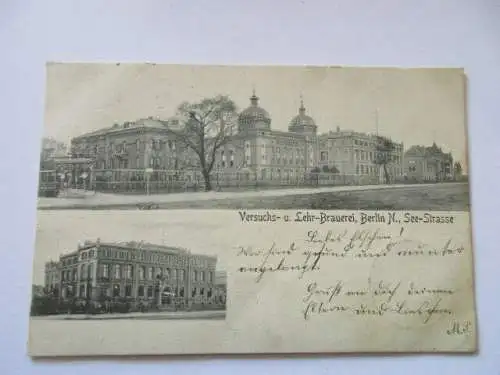 Versuchs- u. Lehr-Brauerei, Berlin N., See-Strasse
Liebes Elschen!
Wir sind gesund und munter
angelangt.
Gruß an dich deine
Eltern und Lieschen.
M. S.